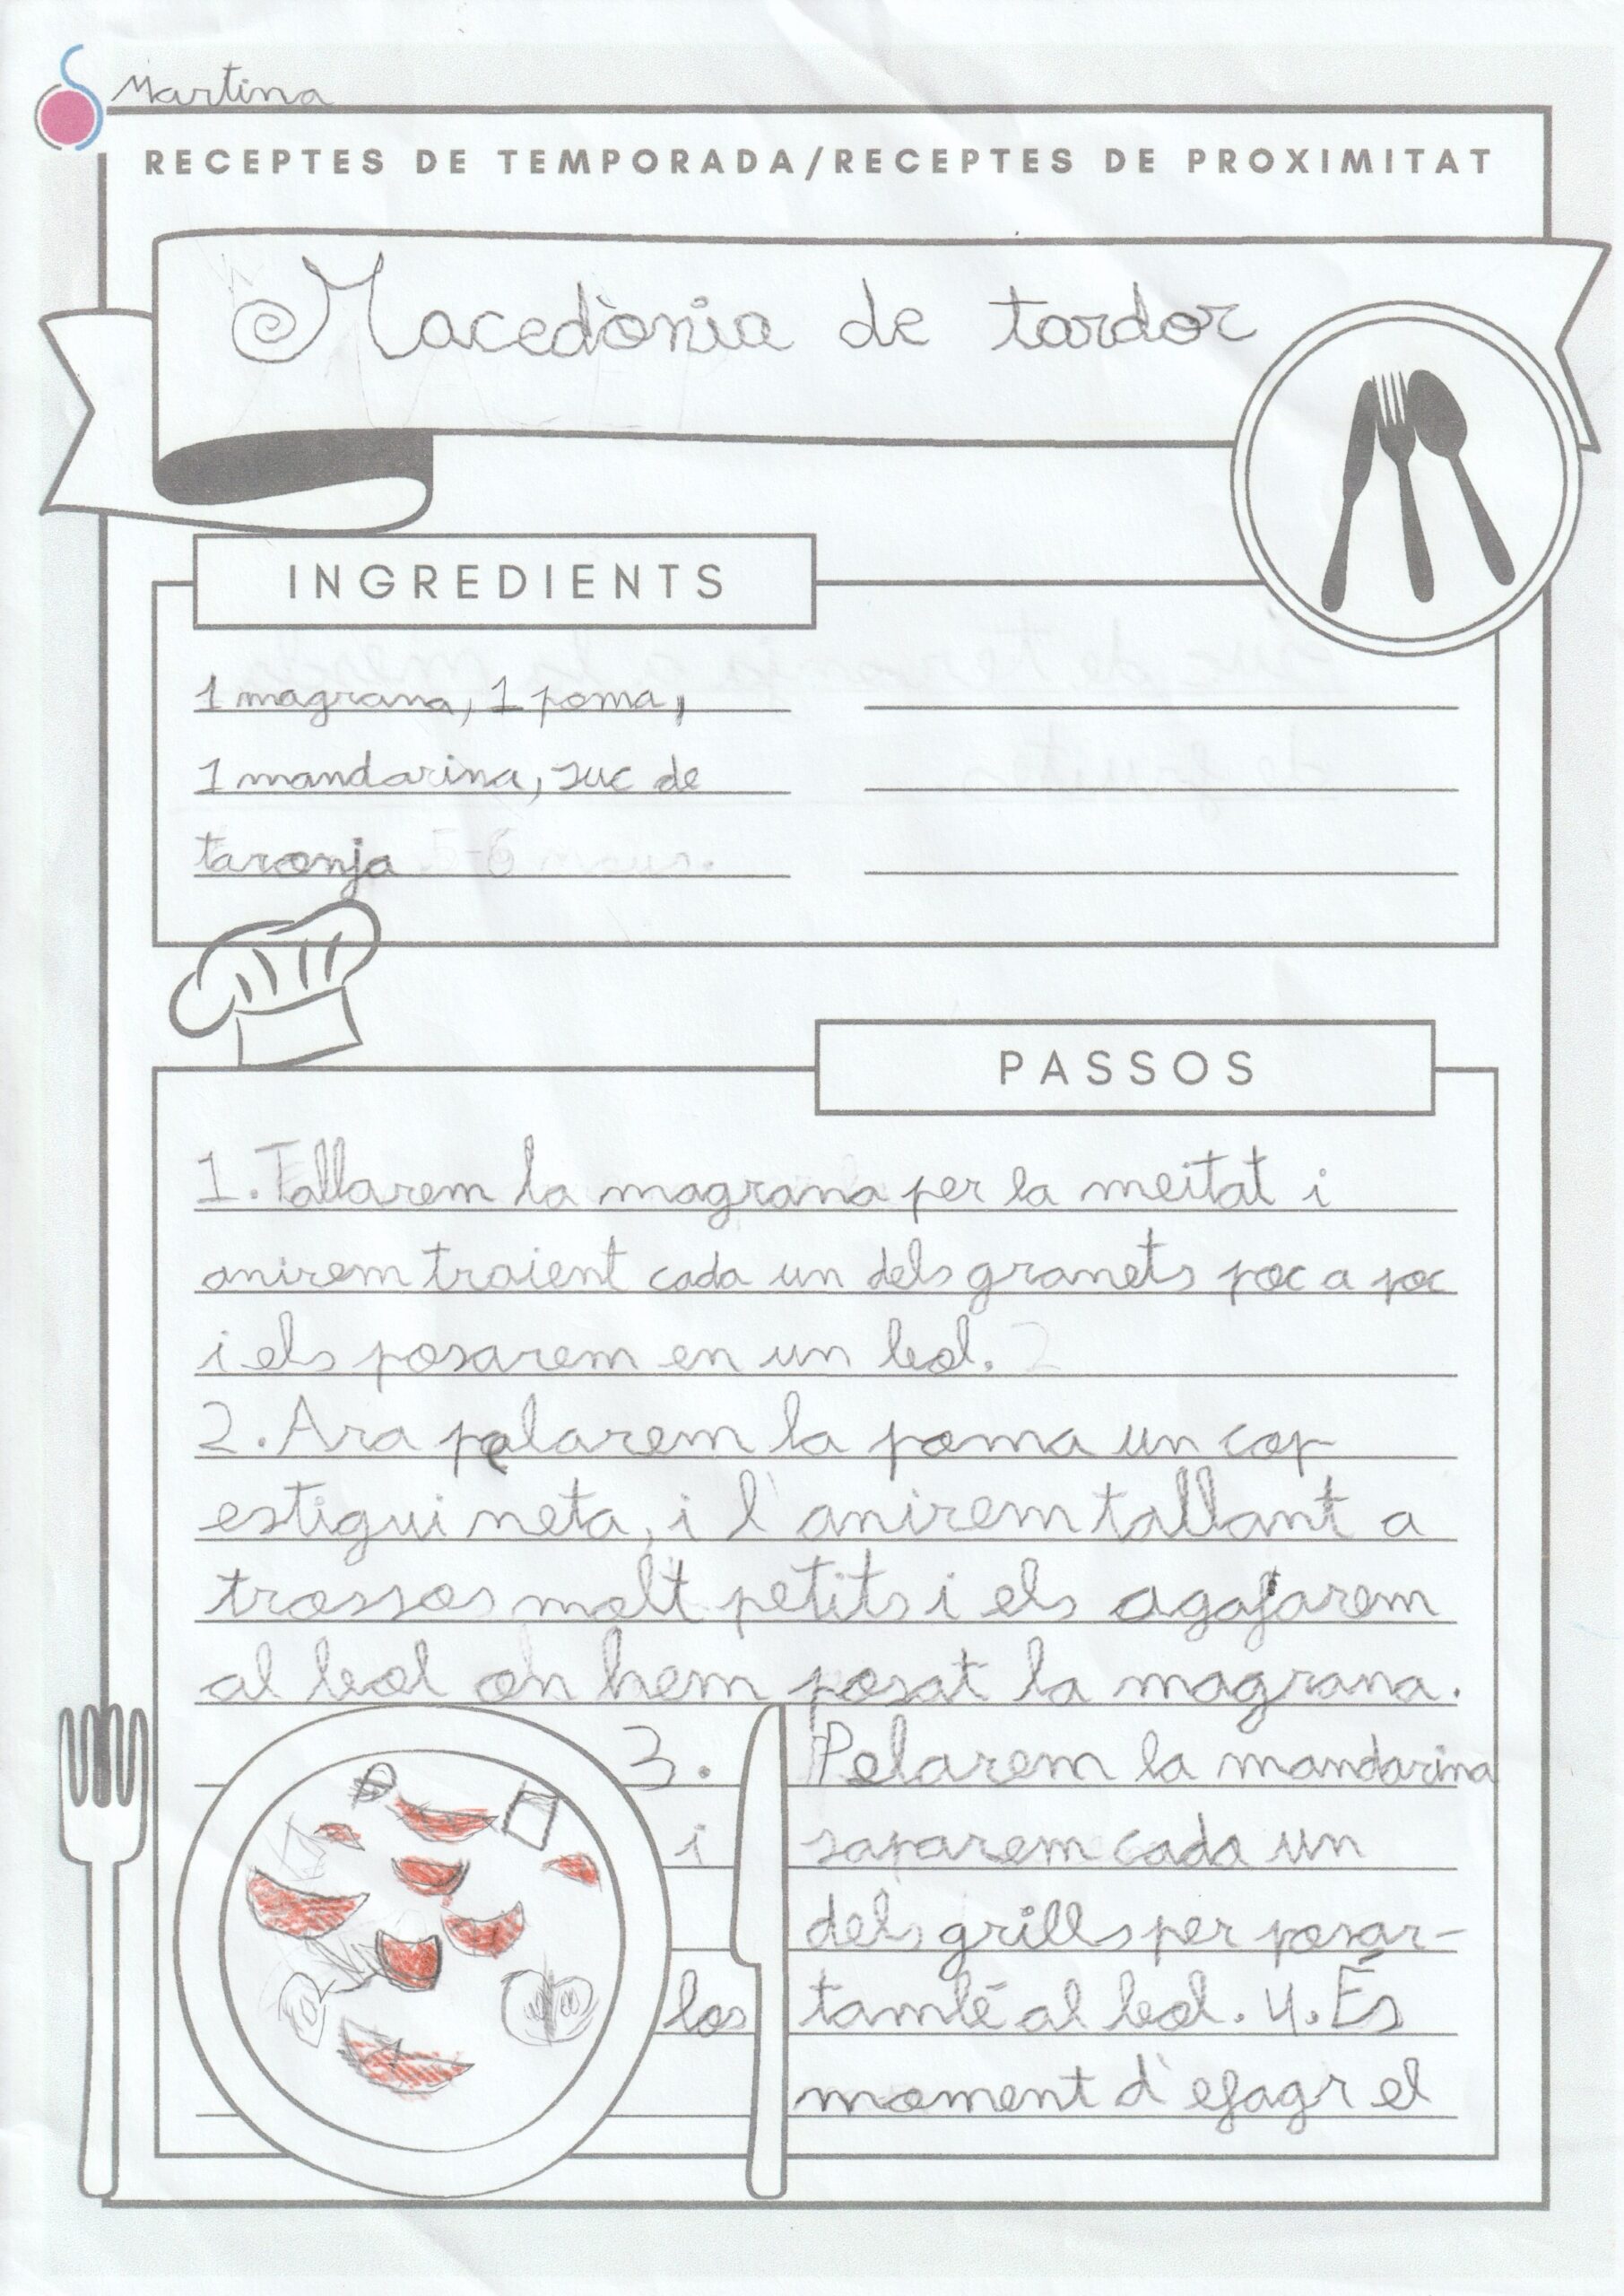 Martina
RECEPTES DE TEMPORADA/RECEPTES DE PROXIMITAT
Macedònia de tardor
INGREDIENTS
1 magrana, 1 poma,
1 mandarina, suc de
taronja
PASSOS
1. Tallarem la magrana per la meitat i
anirem traient cada un dels granets poc a poc
i els posarem en un bol.
2. Ara pelarem la poma un cop
estigui neta, i l'anirem tallant a
trossos molt petits i els agafarem
al bol on hem posat la magrana.
3. Pelarem la mandarina
i saparem cada un
dels grills per posar-
los també al bol. 4. És
moment d'efagr el